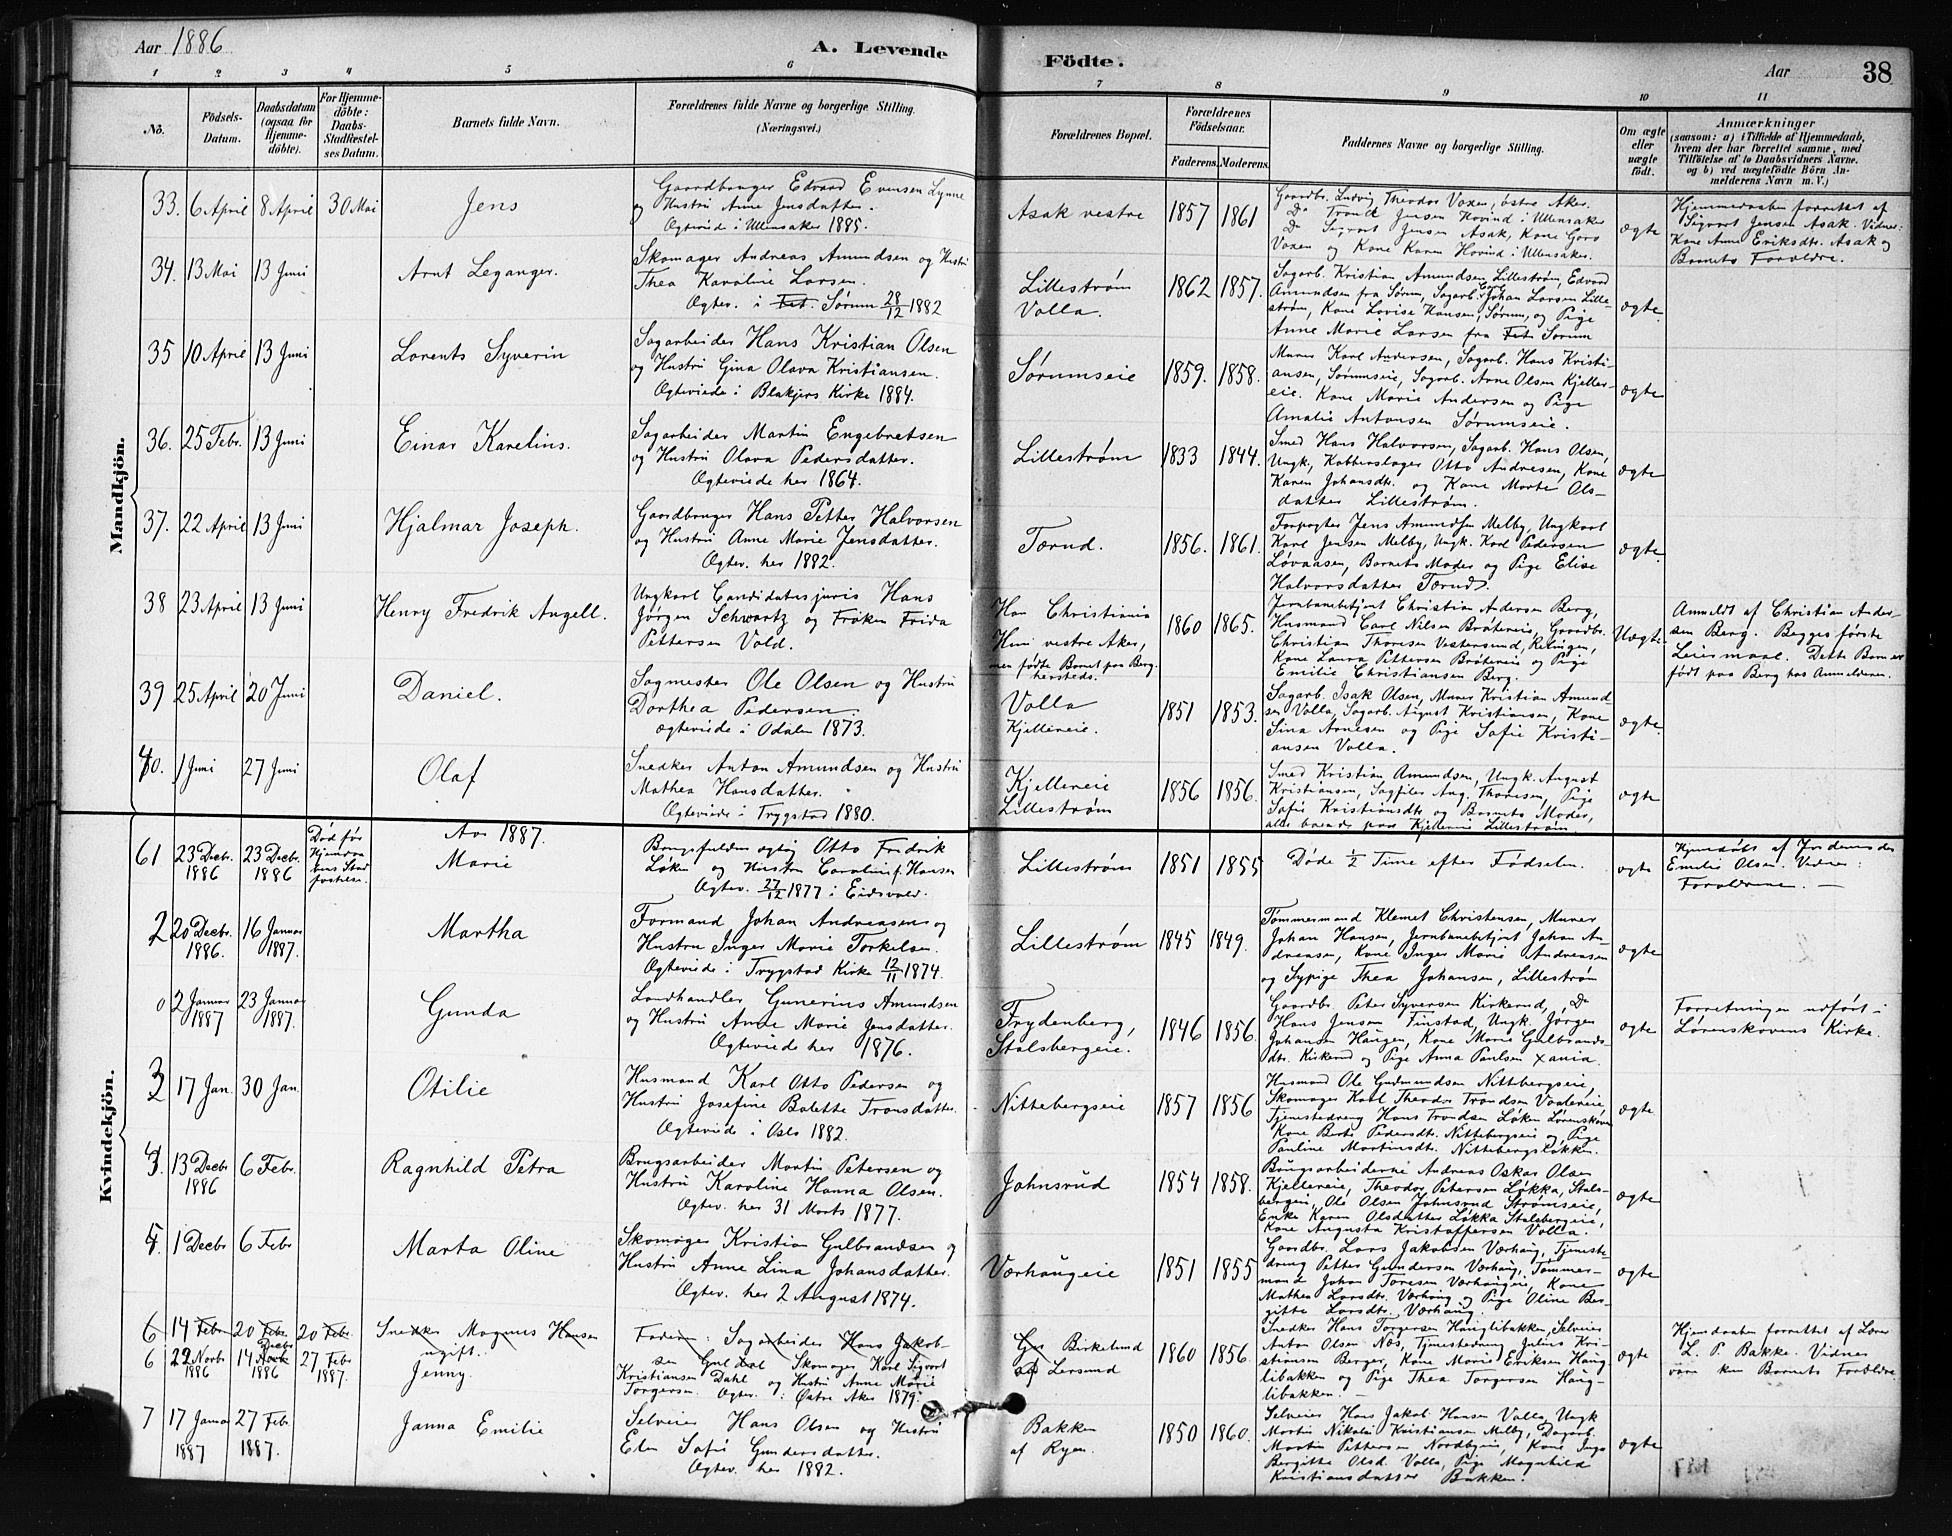 Aar 1886
A. Levende
Födte.
Aar
38
1 2 3 4 5 6 7 8 9 10 11
No.
Födsels-
Datum.
Daabsdatum
(ogsaa for
Hjemme-
döbte).
For Hjemme-
döbte:
Daabs-
Stadfæstel-
ses Datum.
Barnets fulde Navn.
Forældrenes fulde Navne og borgerlige Stilling.
(Næringsvei.)
Forældrenes Bopæl.
Forældrenes
Födselsaar.
Faderens. Moderens.
Faddernes Navne og borgerlige Stilling.
Om ægte
eller
uægte
födt.
Anmærkninger
(saasom: a) i Tilfælde af Hjemmedaab,
hvem der har forrettet samme, med
Tilföielse af to Daabsvidners Navne.
og b) ved uægtefödte Börn An-
melderens Navn m. V.)
Mandkjön.
33. 6 April 8 April 30 Mai
Jens
Gaardbruger Edvard Evensen Lynne
og Hustru Anne Jensdatter.
Ægteviede i Ullensaker 1885.
Asak vestre
1857 1861
Gaardbr. Ludvig Theodor Voxen, østre Aker.
Do Trond Jensen Hovind i Ullensaker
Do Sigvart Jensen Asak, Kone
Voxen og Kone Karen Hovind i Ullensaker.
ægte
Hjemmedaaben forrettet af
Sigvart Jensen Asak. Vidner:
Kone Anne Eriksdt. Asak og
Barnets Forældre.
34. 13 Mai 13 Juni
Arnt Leganger.
Skomager Andreas Amundsen og Hustru
Thea Karoline Larsen.
Ægtev. i Fet. Sørum 28/12 1882
Lillestrøm
Volla.
1862 1857.
Sagarb. Kristian Amundsen Lillestrøm, Edvard
Amundsen fra Sørum, Sagarb. Carl Johan Larsen Lille-
strøm, Kone Lovise Hansen, Sørum, og Pige
Anne Marie Larsen fra Fet Sørum
ægte.
35 10 April 13 Juni
Lorents Syverin
Sagarbeider Hans Kristian Olsen
og Hustru Gina Olava Kristiansen.
Ægteviede i Blakjers Kirke 1884.
Sørumseie
1859. 1858.
Murer Karl Andersen, Sagarb. Hans Kristi-
ansen, Sørumseie, Sagarb. Arne Olsen Kjeller-
eie. Kone Marie Andersen og Pige
Amalie Antonsen Sørumseie.
ægte
36. 25 Febr. 13 Juni
Einar Karelius.
Sagarbeider Martin Engebretsen
og Hustru Olava Pedersdatter.
Ægteviede her 1864.
Lillestrøm
1833 1844.
Smed Hans Halvorsen, Sagarb. Hans Olsen,
Ungk. Kobberslager Otto Andresen, Kone
Karen Johansdt. og Kone Marte Ols-
datter Lillestrøm.
ægte
37. 22 April 13 Juni
Hjalmar Joseph.
Gaardbruger Hans Petter Halvorsen
og Hustru Anne Marie Jensdatter.
Ægtev. her 1882.
Tærud.
1856. 1861.
Forpagter Jens Amundsen Melby, Ungkarl
Karl Jensen Melby, Ungk. Karl Pedersen
Løvaasen, Barnets Moder og Pige Elise
Halvorsdatter Tærud.
ægte
38 23 April 13 Juni
Henry Fredrik Angell.
Ungkarl Candidatus juris Hans
Jørgen Schwartz og Frøken Frida
Pettersen Vold.
Han Christiania
Hun vestre Aker,
men fødte Barnet paa Berg
hersteds.
1860 1865.
Jernbanebetjent Christian Andersen Berg,
Husmand Carl Nilsen Bråteeie, Gaardbr.
Christian Thoresen Vestersund, Relingen,
Kone Laura Pettersen Bråteeie og Pige
Emilie Christiansen Berg.
Uægte
Anmeldt af Christian Ander-
sen Berg. Begges første
Leiermaal. Dette Barn er
født paa Berg hos Anmelderen.
39 25 April 20 Juni
Daniel.
Sagmester Ole Olsen og Hustru
Dorthea Pedersen.
ægteviede i Odalen 1873.
Volla
Kjellereie.
1851 1853.
Sagarb. Isak Olsen, Murer Kristian Amund-
sen Volla, Sagarb. August Kristiansen, Kone
Sina Arnesen og Pige Sofie Kristi-
ansen Volla.
ægte.
40. 1 Juni 27 Juni
Olaf
Snedker Anton Amundsen og Hustru
Mathea Hansdatter.
Ægteviede i Trygstad 1880.
Kjellereie
Lillestrøm
1856 1856.
Smed Kristian Amundsen, Ungk. August
Kristiansen, Sagfiler Aug. Thoresen, Pige
Sofie Kristiansdt. og Barnets Moder,
alle boende paa Kjellereie Lillestrøm
ægte
Kvindekjön.
Aar 1887.
61 23 Decbr. 1886 23 Decbr. 1886
Død før
Hjemmedaa-
bens Stad-
fæstelse.
Marie
Brugsfuldmægtig Otto Fredrik
Løken og Hustru Caroline f. Hansen
Ægtev. 27/12 1877 i Eidsvold.
Lillestrøm
1851 1855
Døde 1/2 Time efter Fødselen.
ægte
Hjemdøbt af Jordemoder
Emilie Olsen. Vidner:
Forældrene. —
2 20 Decbr. 1886. 16 Januar 1887.
Martha
Formand Johan Andreassen og
Hustru Inger Marie Torkelsen.
Ægteviede i Trygstad Kirke 12/11 1874.
Lillestrøm
1845 1849.
Tømmermand Klemet Christensen, Murer
Johan Hansen, Jernbanebetjent Johan An-
dreasen, Kone Inger Marie Andreasen
og Sypige Thea Johansen, Lillestrøm
ægte
0 2 Januar 1887 23 Januar 1887.
Gunda
Landhandler Gunerius Amundsen
og Hustru Anne Marie Jensdatter.
Ægteviede her 1876.
Frydenberg,
Stalsbergeie.
1846 1856
Gaardbr. Peter Syversen Kirkerud, Do
Hans Jensen Tinstad, Ungk. Jørgen
Johansen Haugen, Kone Marie Gulbrands-
dt. Kirkerud og Pige Anna Paulsen Xania.
ægte
Forretningen udført i
Lørenskovens Kirke.
3 17 Jan. 30 Jan.
Otilie
Husmand Karl Otto Pedersen og
Hustru Josefine Bolette Tronsdatter.
Ægteviede i Oslo 1882.
Nittebergseie
1857 1856
Husmand Ole Gudmundsen Nittebergseie,
Skomager Karl Theodor Trondsen Vaalereie,
Tjenestedreng Hans Trondsen Løken Lørenskoven
Kone Berte Pedersdt. Nittebergseie og Pige
Pauline Martinsdt. Nittebergsløkken.
ægte
4. 13 Decbr 1886 6 Febr.
Ragnhild Petra
Brugsarbeider Martin Petersen og
Hustru Karoline Hanna Olsen.
Ægtev. her 31 Marts 1877.
Johnsrud
1854 1858.
Brugsarbeiderne Andreas Oskar Olsen
Kjellereie, Theodor Petersen Løkka, Stals-
bergeie, Ole Olsen Johnsrud Strømseie,
Enke Karen Olsdatter Løkka Stalsbergeie,
Kone Augusta Kristoffersen Volla.
ægte
5. 1 Decbr 6 Febr
Marta Oline
Skomager Kristian Gulbrandsen og
Hustru Anne Lina Johansdatter.
Ægtev. her 2 August 1874.
Værhaugeie
1851 1855
Gaardbr. Lars Jakobsen Værhaug, Tjeneste-
dreng Petter Gundersen Værhaug, Tømmer-
mand Johan Toresen Værhaugeie, Kone
Mathea Larsdt. Værhaug og Pige Oline Ber-
gitte Larsdt. Værhaug.
ægte
6 14 Febr. 20 Febr. 20 Febr.
Snedker Magnus Hansen
ugift.
Faderen: Sagarbeider Hans Jakob-
sen
6 22 Novbr 1886 14 Decbr 1886 27 Febr 1887.
Jenny.
Skomager Karl Sigvart
Kristiansen Dahl og Hustru Anne Marie
Torgersen. Ægtev. i Østre Aker 1879.
Birkelund
af Lersund
1860 1856.
Snedker Hans Torgersen Hauglibakken, Selveier
Anton Olsen Næs, Tjenestedreng Julius Kri-
stiansen Berger, Kone Marie Eriksen Haug-
libakken og Pige Thea Torgersen Haug-
libakken. —
ægte
Hjemdaaben forrettet af Lærer
L. P. Bakke. Vidner
vare kun Barnets Forældre.
7 17 Januar 1887 27 Febr. 1887.
Janna Emilie
Selveier Hans Olsen og Hustru
Elen Sofie Gundersdatter.
Ægtev. her 1882.
Bakken
af Ryen.
1850 1860.
Selveier Hans Jakob Hansen Volla, Ungk
Martin Nikolai Kristiansen Melby, Dagarb.
Martin Pettersen Nordbyeie, Kone Inga
Bergitte Olsd. Volla, Pige Magnhild
Kristiansdatter Bakken.
ægte